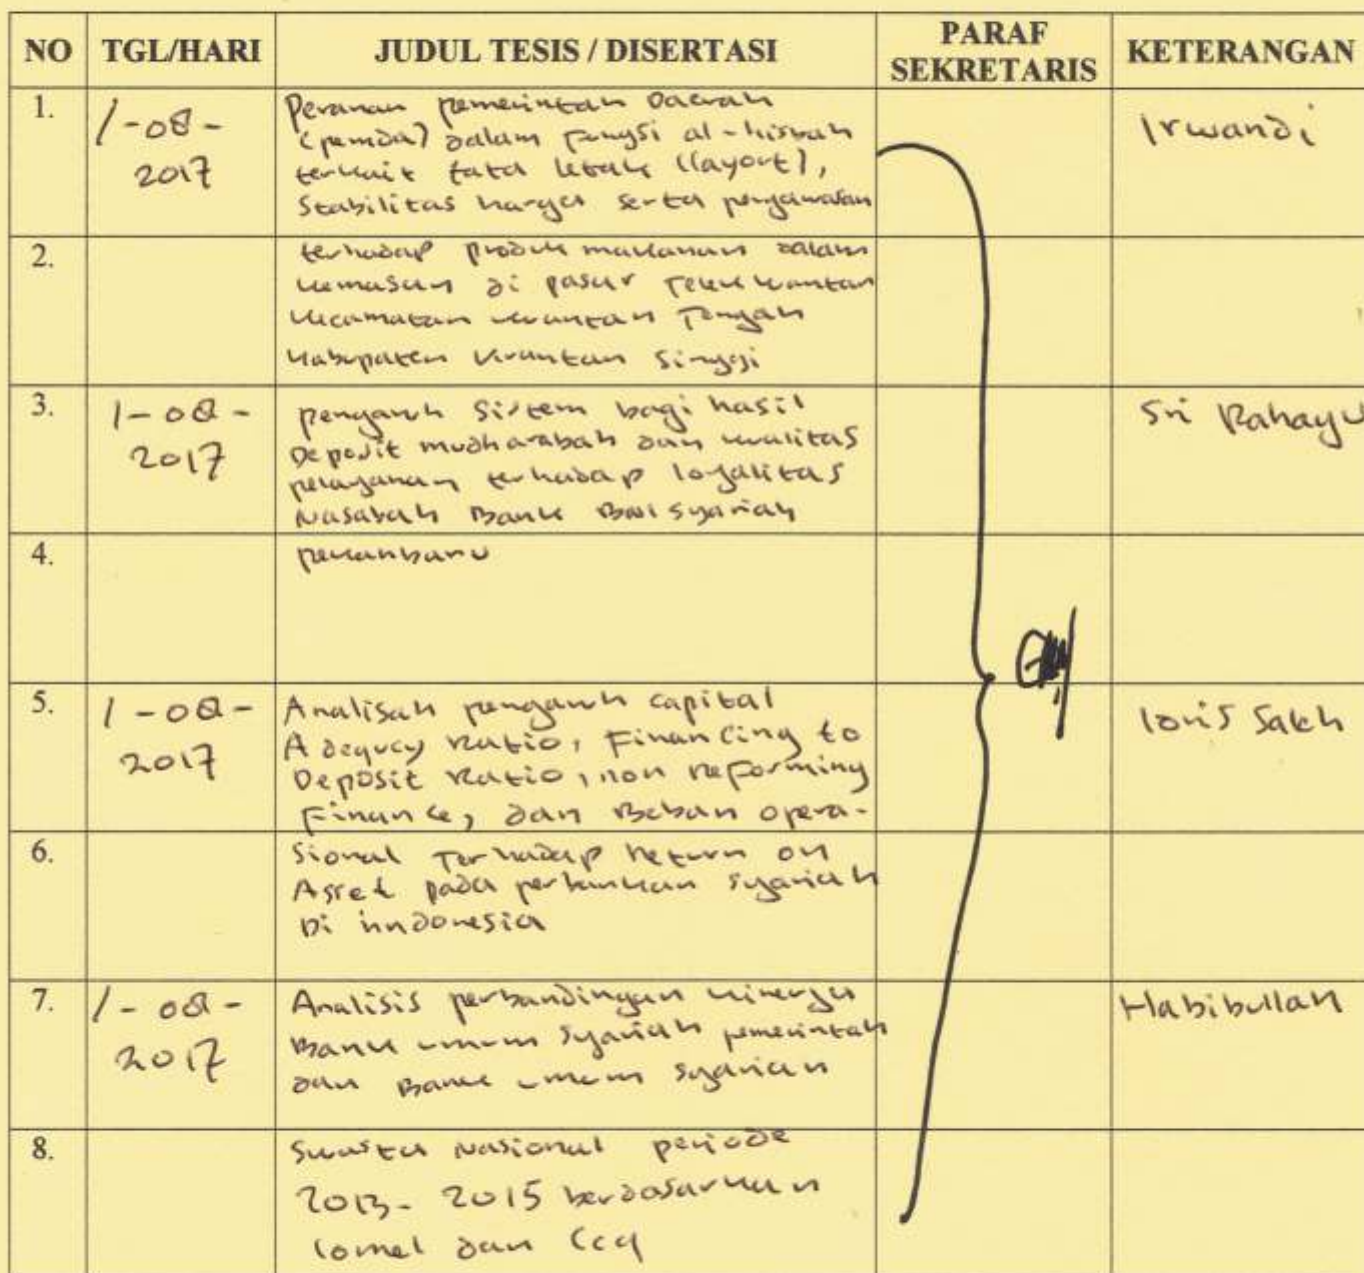 NO TGL/HARI JUDUL TESIS / DISERTASI PARAF SEKRETARIS KETERANGAN
1. 1-08-2017 Peranan pemerintah Daerah Irwandi
(pemda) dalam fungsi al-hisbah
terkait tata letak (layout),
Stabilitas harga serta pengawasan
2. terhadap produk makanan dalam
kemasan di pasar Teluk kuantan
kecamatan kuantan Tengah
kabupaten kuantan Singgi
3. 1-08-2017 pengaruh Sistem bagi hasil Sri Rahayu
Deposit mudharabah dan kualitas
pelayanan terhadap loyalitas
Nasabah Bank BNI syariah
4. pekanbaru
5. 1-08-2017 Analisah pengaruh capital
Adequcy Ratio, Financing to
Deposit Ratio, non Reforming
Finance, dan Beban opera-
6. sional Terhadap Return on
Asset pada perbankan syariah
Di indonesia
7. 1-08-2017 Analisis perbandingan kinerja Habibullah
Bank umum syariah pemerintah
dan Bank umum syariah
8. Swasta Nasional periode
2013-2015 berdasarkan
dan